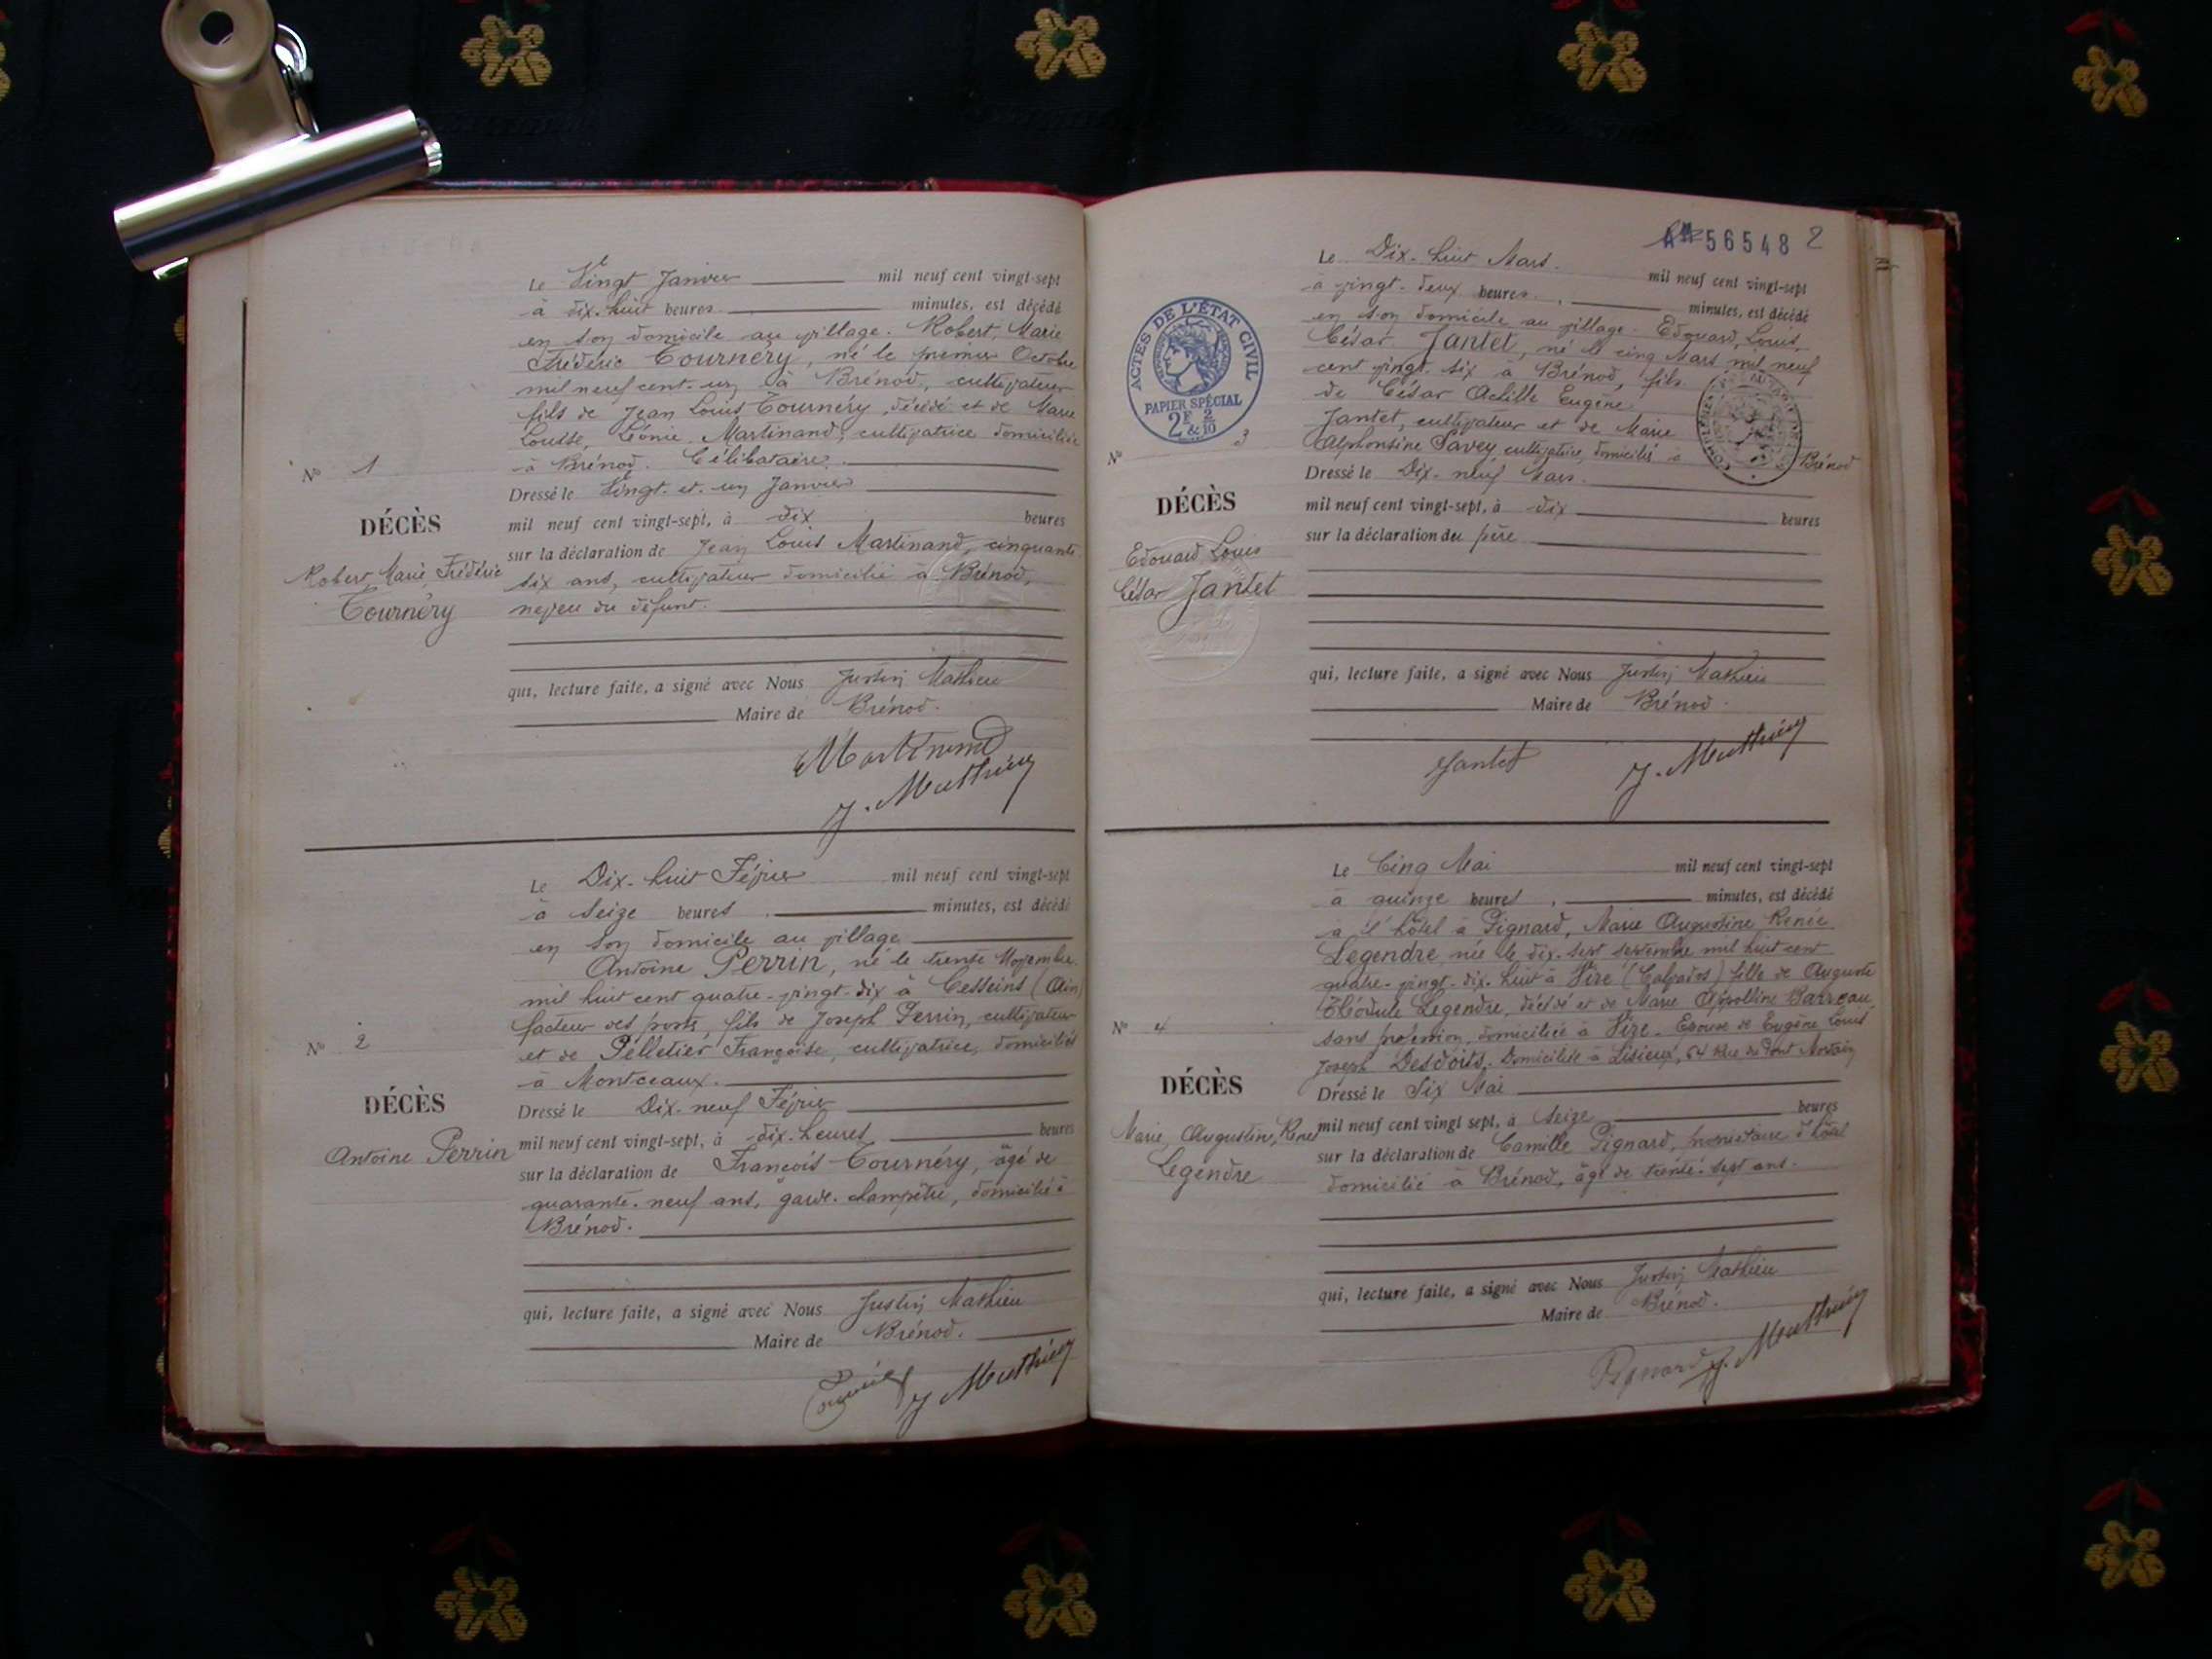 Le Vingt Janvier mil neuf cent vingt-sept
à dix-huit heures minutes, est décédé
en son domicile au village. Robert, Marie
Frédéric Tournéry, né le premier Octobre
mil neuf cent-un à Brénod, cultivateur
fils de Jean Louis Tournéry, décédé et de Marie
Louise, Léonie Martinand, cultivatrice domiciliée
à Brénod. Célibataire.
No 1
DÉCÈS
Robert, Marie, Frédéric
Tournéry
Dressé le Vingt-et-un Janvier
mil neuf cent vingt-sept, à dix heures
sur la déclaration de Jean Louis Martinand, cinquante
six ans, cultivateur domicilié à Brénod,
neveu du défunt.
qui, lecture faite, a signé avec Nous Justin Mathieu
Maire de Brénod.
Martinand
J. Mathieu
Le Dix-huit Février mil neuf cent vingt-sept
à seize heures minutes, est décédé
en son domicile au village
Antoine Perrin, né le trente Novembre
mil huit cent quatre-vingt-dix à Cesseins (Ain)
facteur des postes, fils de Joseph Perrin, cultivateur
et de Pelletier Françoise, cultivatrice, domiciliés
à Montceaux.
No 2
DÉCÈS
Antoine Perrin
Dressé le Dix-neuf Février
mil neuf cent vingt-sept, à dix-heures heures
sur la déclaration de François Tournéry, âgé de
quarante-neuf ans, garde-champêtre, domicilié à
Brénod.
qui, lecture faite, a signé avec Nous Justin Mathieu
Maire de Brénod.
J Mathieu
AM 56548 2
Le Dix-huit Mars. mil neuf cent vingt-sept
à vingt-deux heures minutes, est décédé
en son domicile au village. Edouard, Louis,
César Jantet, né le cinq Mars mil neuf
cent vingt-six à Brénod, fils
de César Achille Eugène
Jantet, cultivateur et de Marie
Alphonsine Savey, cultivatrice, domiciliés à Brénod
ACTES DE L'ÉTAT CIVIL
PAPIER SPÉCIAL
2F & 2/10
No 3
DÉCÈS
Edouard Louis
César Jantet
Dressé le Dix-neuf Mars.
mil neuf cent vingt-sept, à dix heures
sur la déclaration du père
qui, lecture faite, a signé avec Nous Justin Mathieu
Maire de Brénod.
Jantet J. Mathieu
Le Cinq Mai mil neuf cent vingt-sept
à quinze heures, minutes, est décédé
à l'hôtel à Pignard, Marie Augustine Renée
Legendre, née le dix-sept septembre mil huit cent
quatre-vingt-dix-huit à Vire (Calvados) fille de Auguste
Théodule Legendre, décédé et de Marie Appolline Barreau,
sans profession, domiciliée à Vire. Epouse de Eugène Louis
Joseph Desdoits. Domiciliée à Lisieux, 64 Rue du Pont Mortain
No 4
DÉCÈS
Marie, Augustine, Renée
Legendre
Dressé le Six Mai
mil neuf cent vingt sept, à seize heures
sur la déclaration de Camille Pignard, propriétaire d'hôtel
domicilié à Brénod, âgé de trente-sept ans.
qui, lecture faite, a signé avec Nous Justin Mathieu
Maire de Brénod.
Pignard J. Mathieu